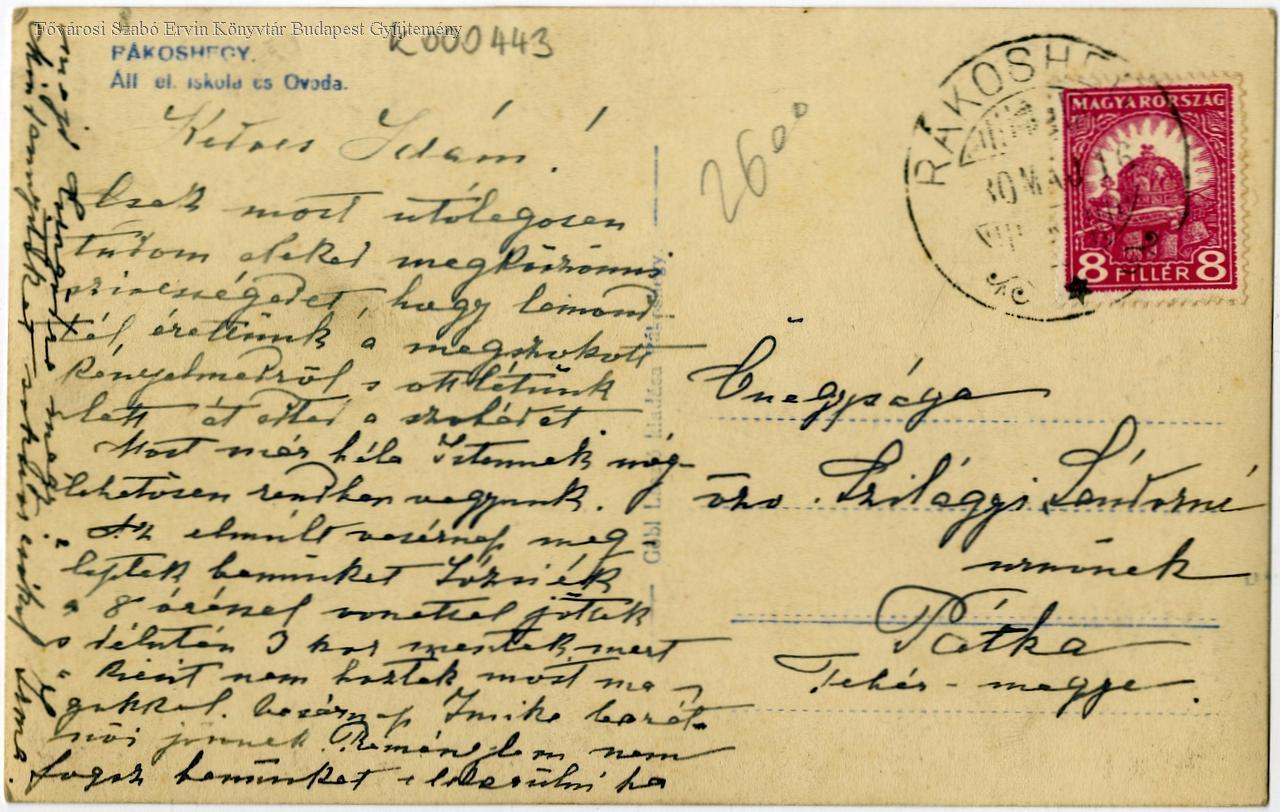 Fővárosi Szabó Ervin Könyvtár Budapest Gyűjtemény
K000443
RÁKOSHEGY.
Áll el. iskola és Óvoda.
Kedves Idám!
Csak most utólagosan
tudom neked megköszönni
szivességedet, hogy lemond
tál, érettünk a megszokott
kényelmedről s ottlétünk
alatt át adtad a szobádat.
Most már hála Istennek meg-
lehetősen rendben vagyunk.
Az elmúlt vasárnap meg
leptek bennünket Józsiék
a 8 órással vonattal jöttek
s délután 3 kor mentek, mert
a kicsit nem hozták most ma-
gukkal. Vasárnap Imike barát-
női jönnek. Reménylem nem
fogsz bennünket elkerülni ha
majd
Irma.
2600
RÁKOSH
30 MÁJ 16
MAGYARORSZÁG
8 FILLÉR 8
Őnagysága
özv. Szilágyi Sándorné
urnőnek
Pátka
Fehér-megye.